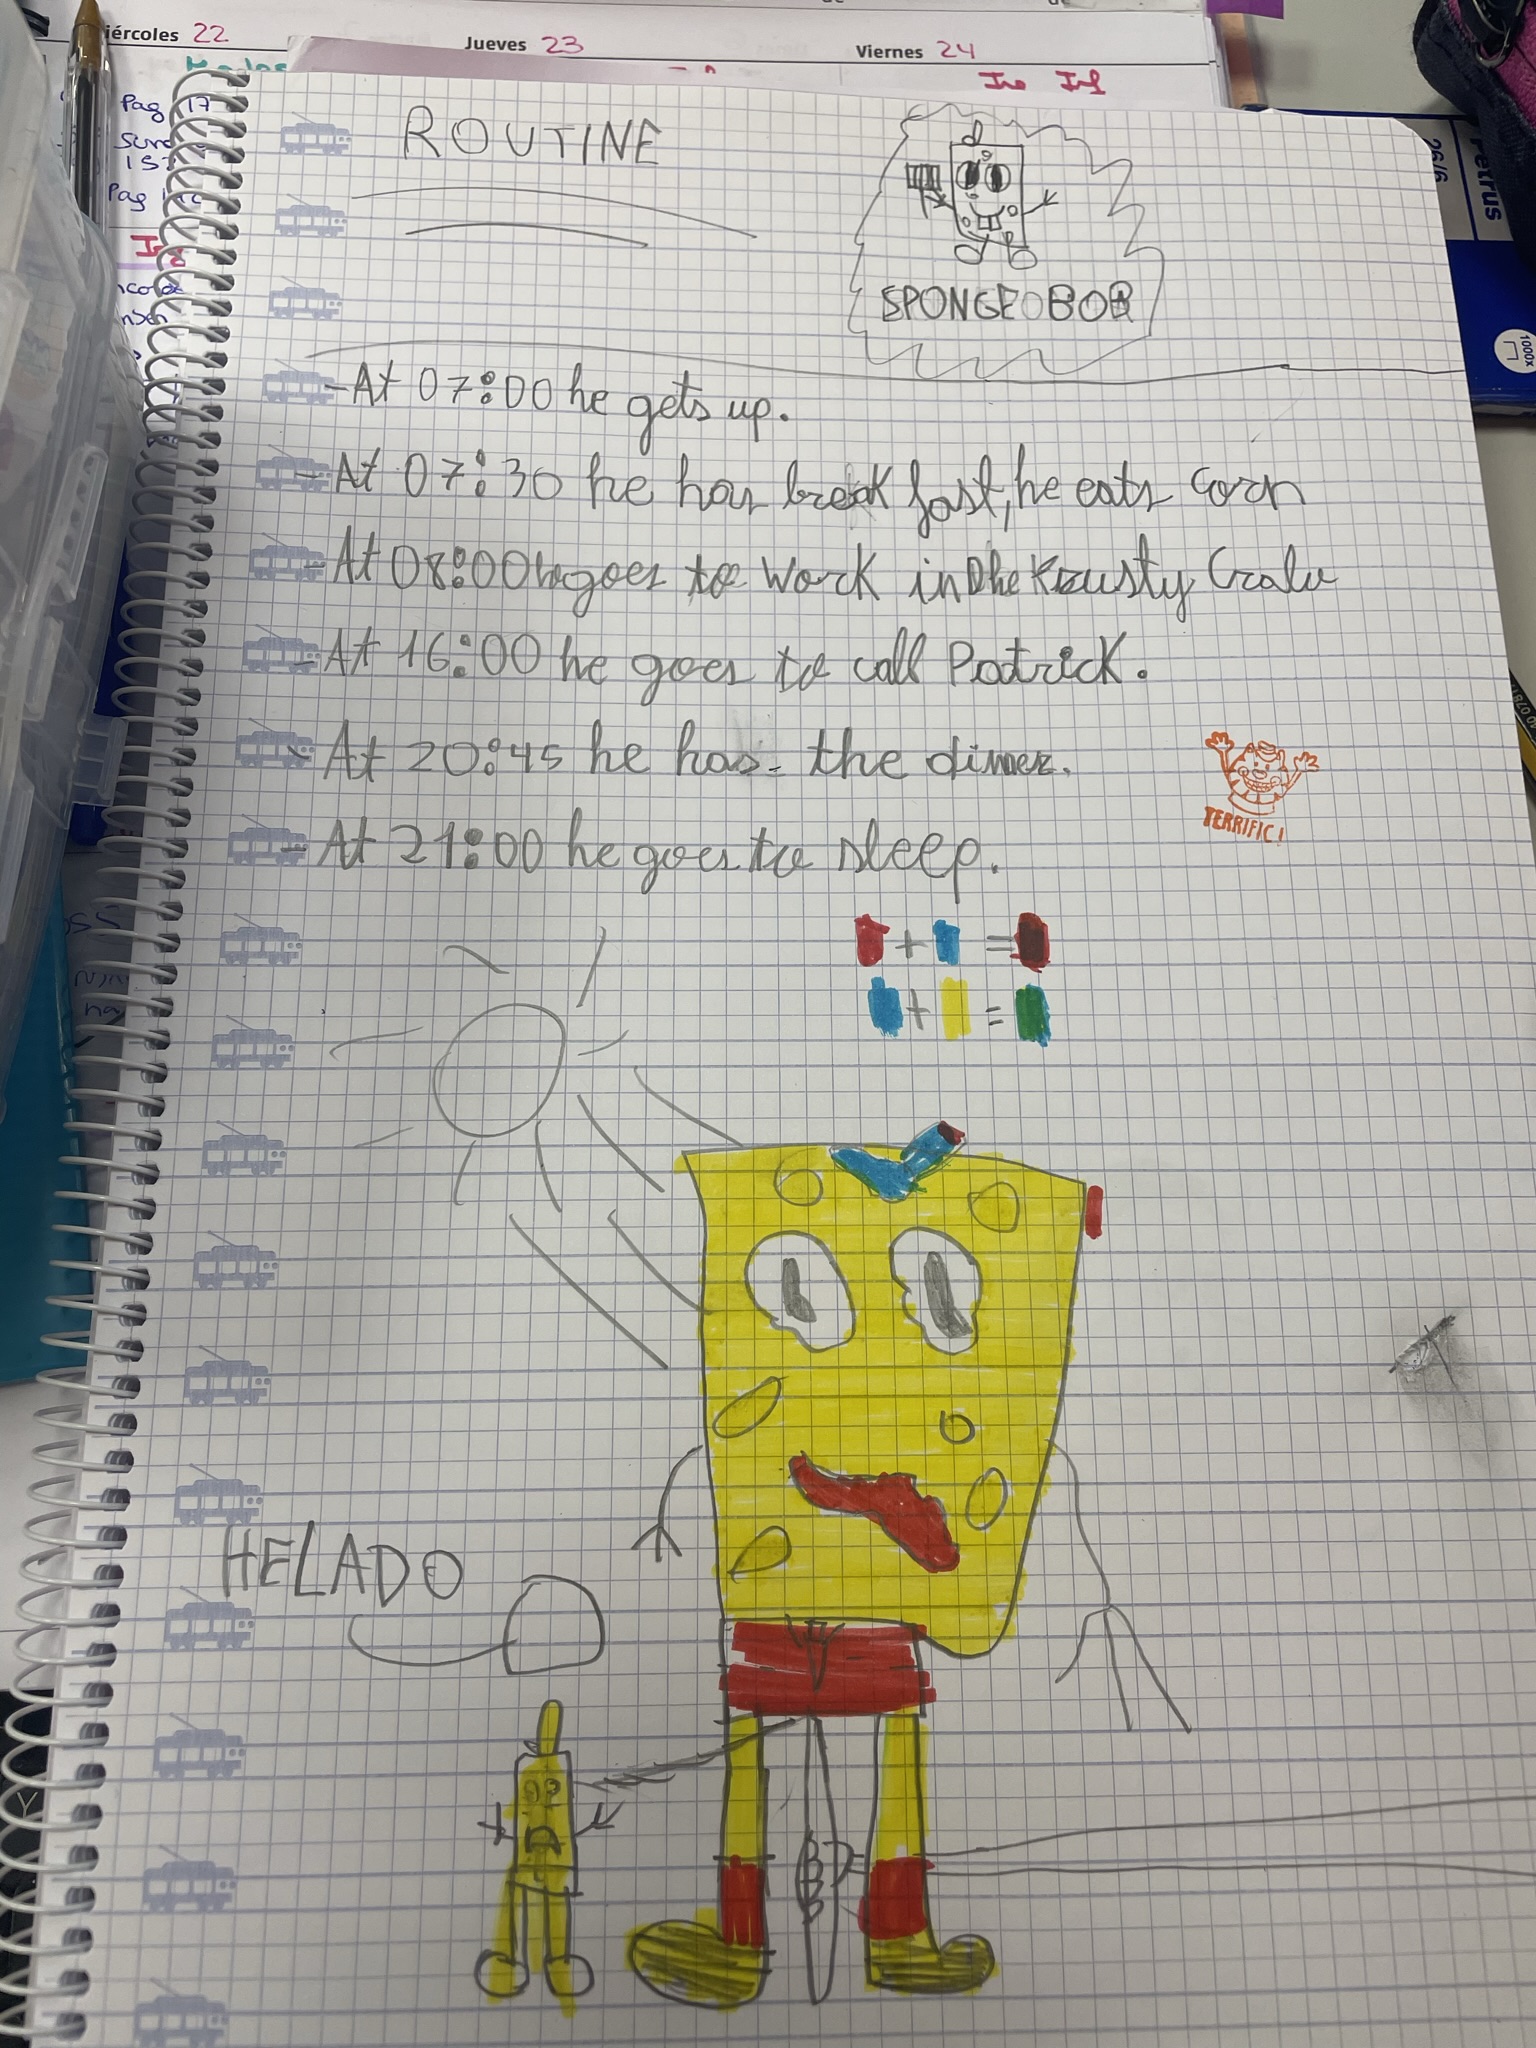 iércoles 22
Jueves 23
Viernes 24
Pag 17
Pag
ROUTINE
SPONGEOBOB
-At 07:00 he gets up.
-At 07:30 he has breakfast, he eats corn
-At 08:00 he goes to work in the Krusty Crab
-At 16:00 he goes to call Patrick.
-At 20:45 he has the dinner.
-At 21:00 he goes to sleep.
TERRIFIC!
+ =
+ =
HELADO
Petrus
26/6
1000x